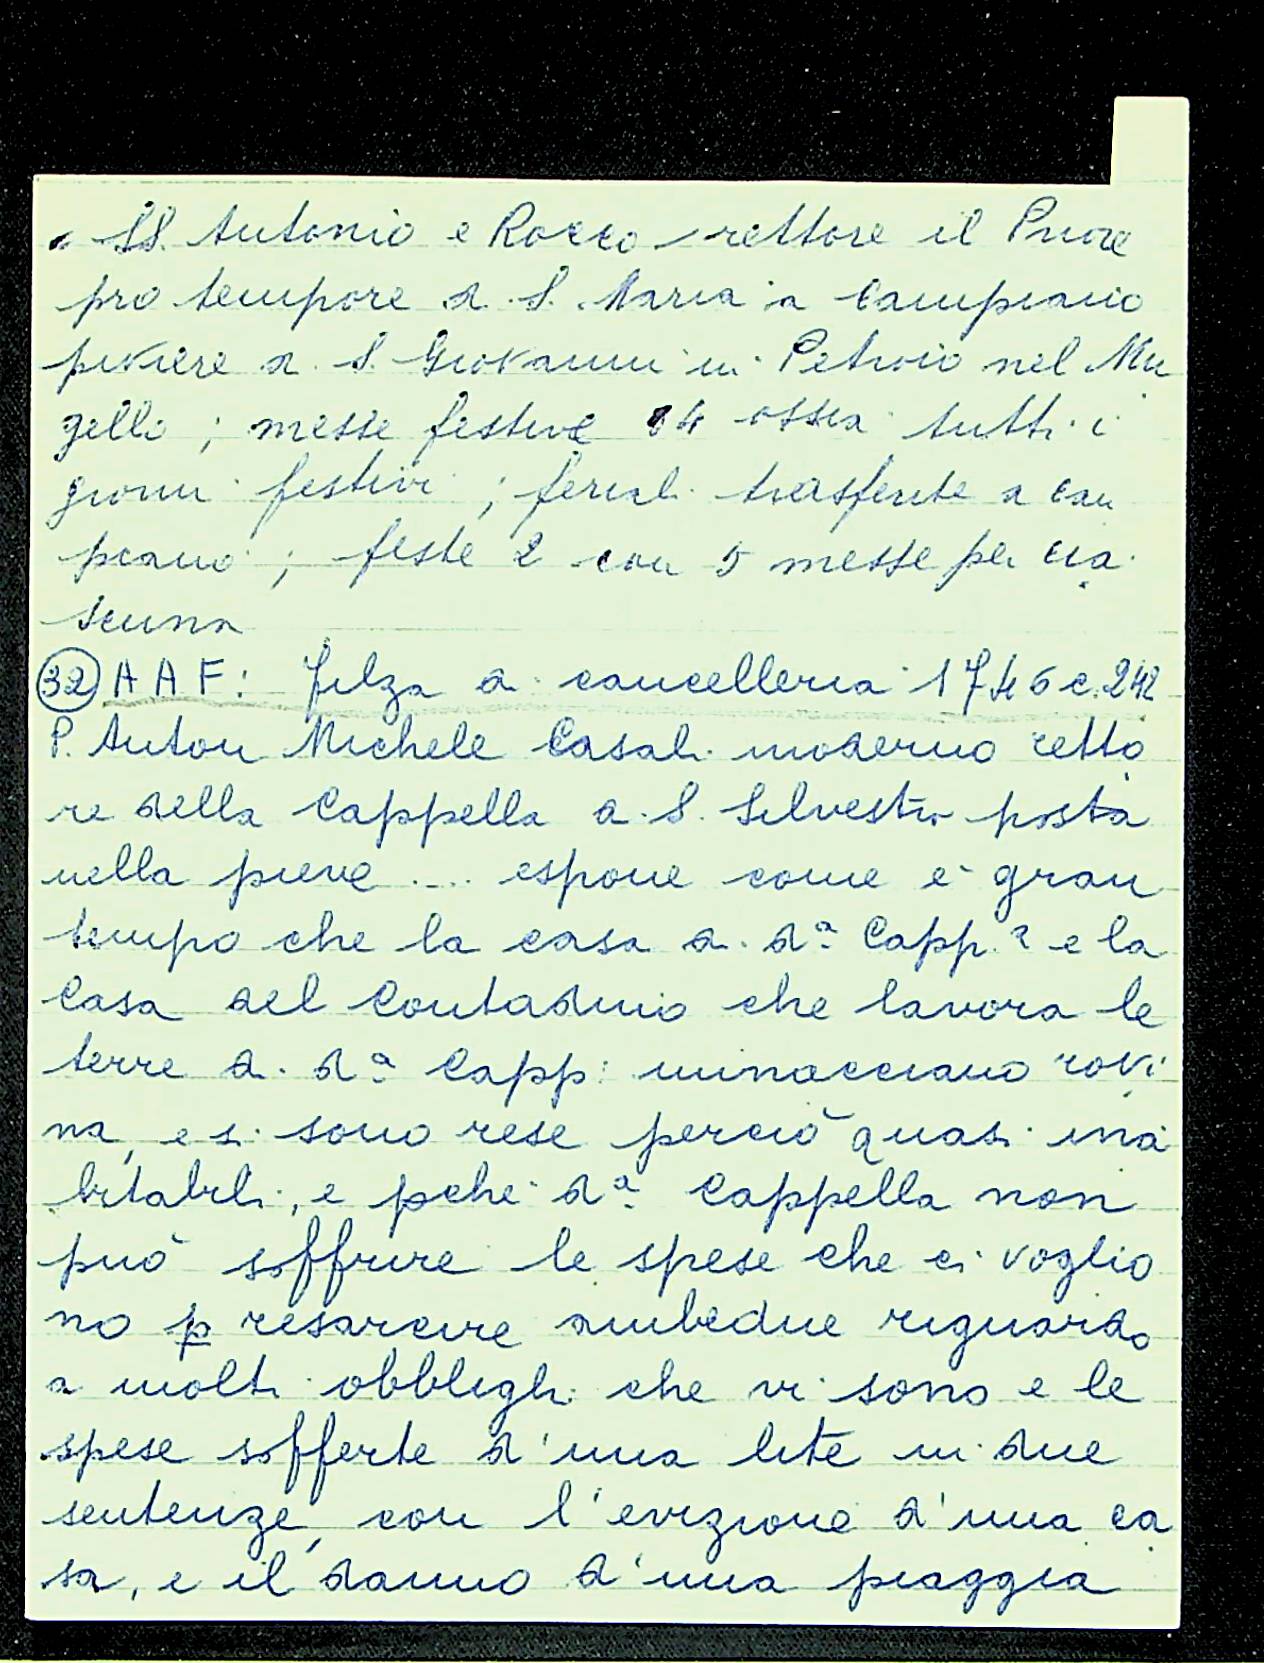 SS. Antonio e Rocco - rettore il Priore
pro tempore di S. Maria a Campiano
piviere di S. Giovanni in Petroio nel Mu
gello; messe festive 84 ossia tutti i
giorni festivi; feriali trasferite a Cam
piano; feste 2 con 5 messe per cia
scuna
32 A A F: Filza di cancelleria 1746 c. 242
P. Anton Michele Casali moderno retto
re della Cappella di S. Silvestro posta
nella pieve .... espone come è gran
tempo che la casa di dª Cappª e la
Casa del Contadino che lavora le
terre di dª Capp: minacciano rovi
na, e si sono rese perciò quasi ina
bitabili, e pche dª Cappella non
può soffrire le spese che ci voglio
no p resarcire ambedue riguardo
a molti obblighi che vi sono e le
spese sofferte d'una lite in due
sentenze, con l'evizione d'una ca
sa, e il danno d'una piaggia